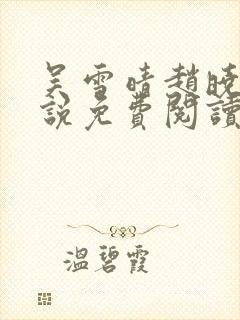 吴雪晴趙曉
說免費閱讀
溫碧霞